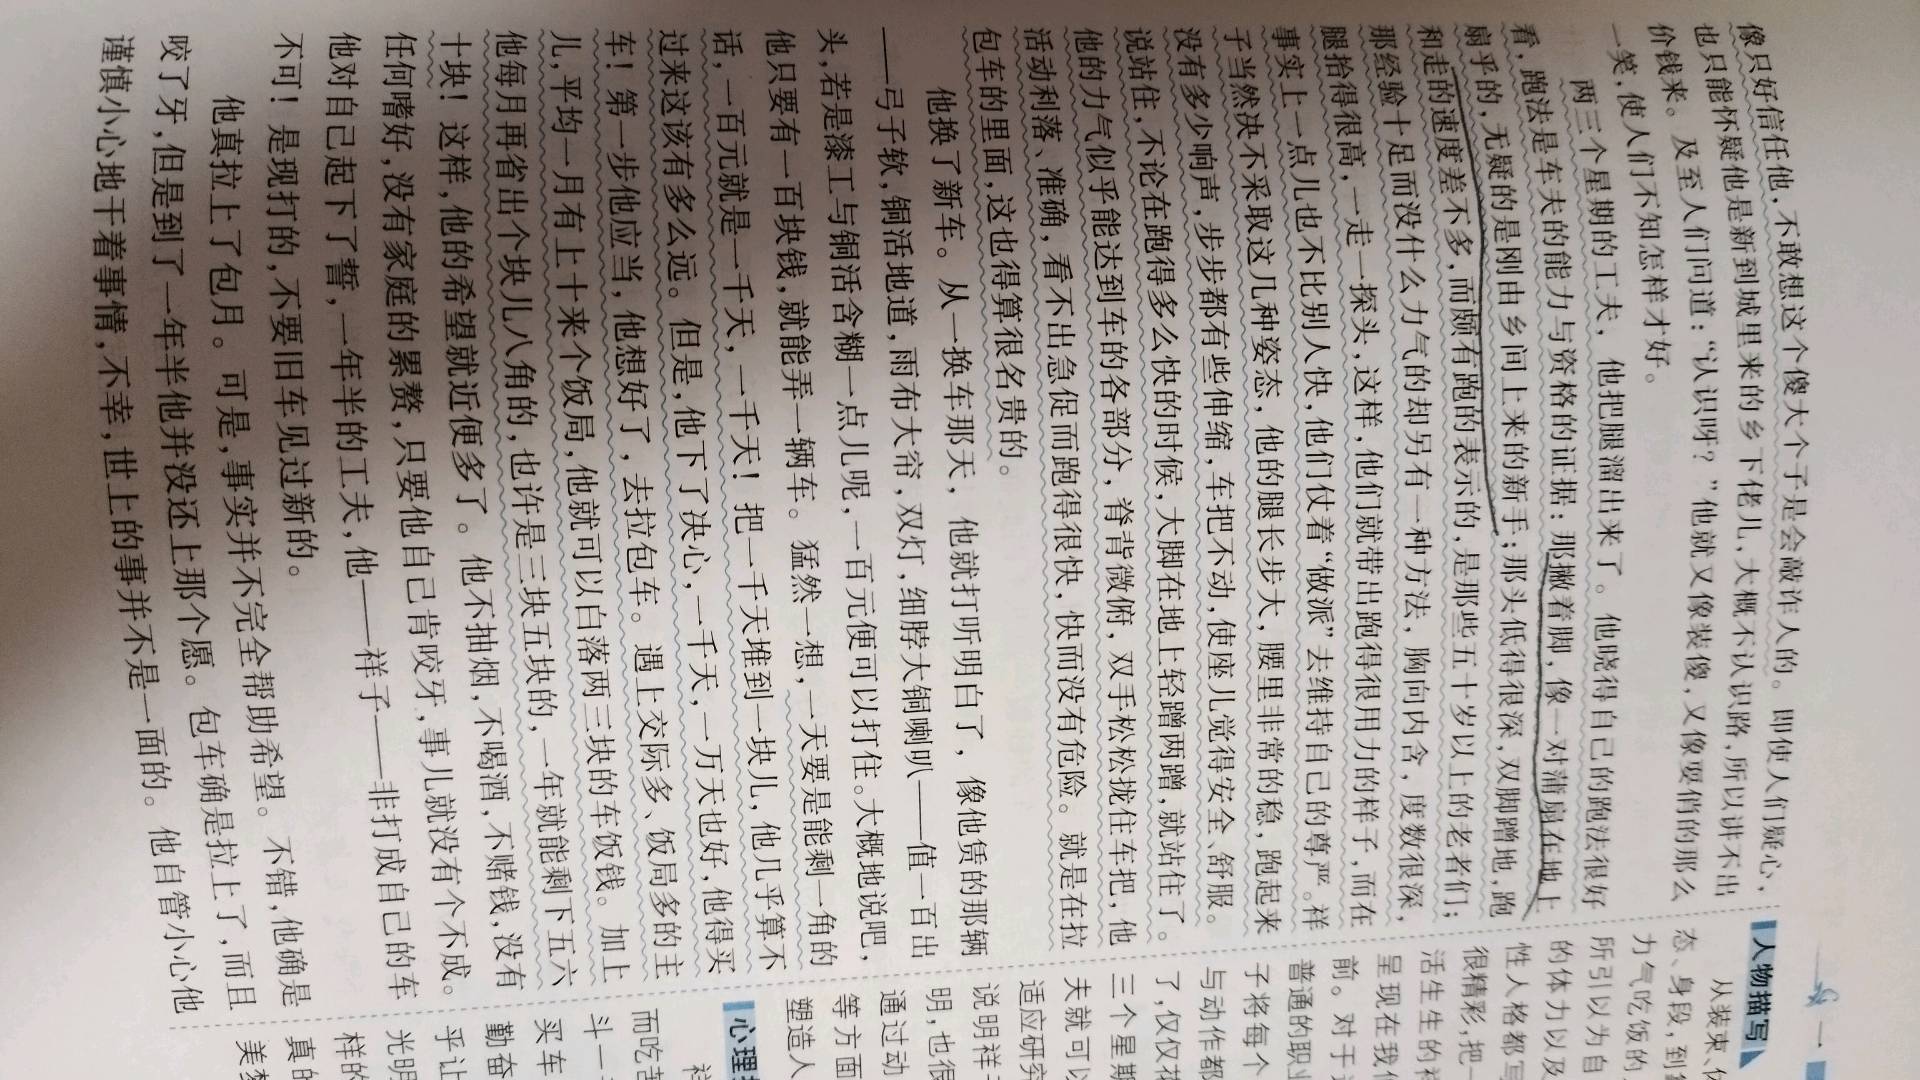 像只好信任他，不敢想这个傻大个子是会敲诈人的。即使人们疑心，
也只能怀疑他是新到城里来的乡下佬儿，大概不认识路，所以讲不出
价钱来。及至人们问道：“认识呀？”他就又像装傻，又像耍俏的那么
一笑，使人们不知怎样才好。
两三个星期的工夫，他把腿溜出来了。他晓得自己的跑法很好
看，跑法是车夫的能力与资格的证据：那撇着脚，像一对蒲扇在地上
扇乎的，无疑的是刚由乡间上来的新手；那头低得很深，双脚蹭地，跑
和走的速度差不多，而颇有跑的表示的，是那些五十岁以上的老者们；
那经验十足而没什么力气的却另有一种方法，胸向内含，度数很深，
腿抬得很高，一走一探头，这样，他们就带出跑得很用力的样子，而在
事实上一点儿也不比别人快，他们仗着“做派”去维持自己的尊严。祥
子当然决不采取这几种姿态，他的腿长步大，腰里非常的稳，跑起来
没有多少响声，步步都有些伸缩，车把不动，使座儿觉得安全、舒服。
说站住，不论在跑得多么快的时候，大脚在地上轻蹭两蹭，就站住了。
他的力气似乎能达到车的各部分，脊背微俯，双手松松拢住车把，他
活动利落、准确，看不出急促而跑得很快，快而没有危险。就是在拉
包车的里面，这也得算很名贵的。
他换了新车。从一换车那天，他就打听明白了，像他赁的那辆
——弓子软，铜活地道，雨布大帘，双灯，细脖大铜喇叭——值一百出
头，若是漆工与铜活含糊一点儿呢，一百元便可以打住。大概地说吧，
他只要有一百块钱，就能弄一辆车。猛然一想，一天要是能剩一角的
话，一百元就是一千天，一千天！把一千天堆到一块儿，他几乎算不
过来这该有多么远。但是，他下了决心，一千天，一万天也好，他得买
车！第一步他应当，他想好了，去拉包车。遇上交际多、饭局多的主
儿，平均一月有上十来个饭局，他就可以白落两三块的车饭钱。加上
他每月再省出个块儿八角的，也许是三块五块的，一年就能剩下五六
十块！这样，他的希望就近便多了。他不抽烟，不喝酒，不赌钱，没有
任何嗜好，没有家庭的累赘，只要他自己肯咬牙，事儿就没有个不成。
他对自己起下了誓，一年半的工夫，他——祥子——非打成自己的车
不可！是现打的，不要旧车见过新的。
他真拉上了包月。可是，事实并不完全帮助希望。不错，他确是
咬了牙，但是到了一年半他并没还上那个愿。包车确是拉上了，而且
谨慎小心地干着事情，不幸，世上的事并不是一面的。他自管小心他
一
人物描写
从装束、体
态、身段，到
力气吃饭的
所引以为自
的体力以及
性人格都写
很精彩，把一
活生生的祥
呈现在我们
前。对于
普通的职业
子将每个
与动作都
了，仅仅花
三个星期
夫就可以
适应研究
说明祥子
明，也很
通过动
等方面
塑造人
心理
祥
而吃苦
斗一
买车
勤奋
乎让
光明
样的
真的
美梦